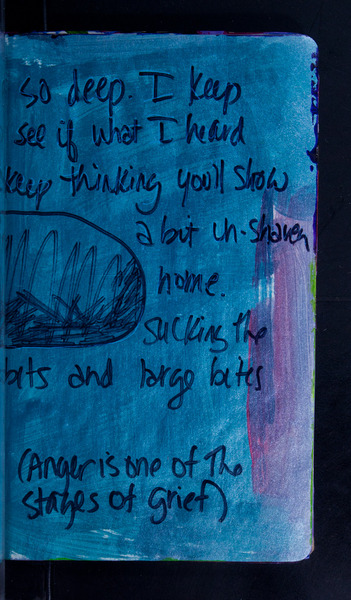 so deep. I keep
see if what I heard
keep thinking you'll show
a bit un-shaven
home.
sucking the
bits and large bites
(Anger is one of The
stages of Grief)